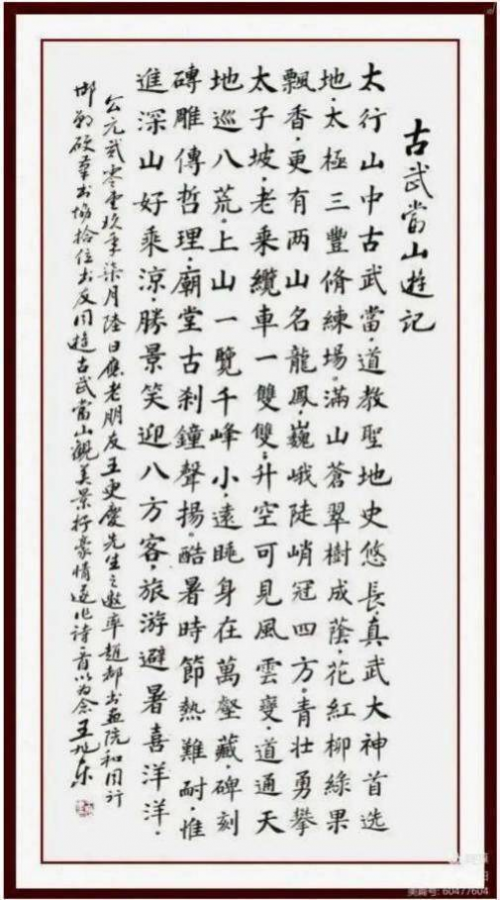 古武當山遊記
太行山中古武當·道教聖地史悠長·真武大神首选
地·太極三豐脩練場·滿山蒼翠樹成蔭·花紅柳綠果
飄香·更有两山名龍鳳·巍峨陡峭冠四方·青壮勇攀
太子坡·老乘纜車一雙雙·升空可見風雲變·道通天
地巡八荒·上山一覽千峰小·遠眺身在萬壑藏·碑刻
磚雕傳哲理·廟堂古刹鐘聲揚·酷暑時節熱難耐·惟
進深山好乘涼·勝景笑迎八方客·旅游避暑喜洋洋·
公元贰零壹玖年柒月陸日應老朋友王更慶先生之邀率趙都书画院和同行
书協拾位书友同遊古武當山觀美景抒豪情遂作詩一首以为念王旭东
美篇号: 60477604